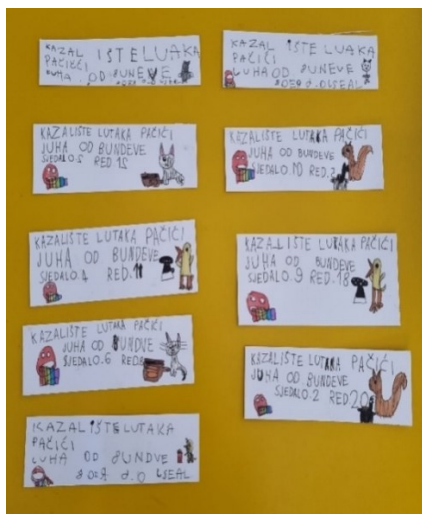 KAZAL IŠTE LUAKA
PAČIĆI
JUHA OD BUNEVE
KAZAL IŠTE LUAKA
PAČIĆI
JUHA OD BUNEVE
KAZALIŠTE LUTAKA PAČIĆI
JUHA OD BUNDEVE
SJEDALO.5 RED 15
KAZALIŠTE LUTAKA PAČIĆI
JUHA OD BUNDEVE
SJEDALO.10 RED.2
KAZALIŠTE LUTAKA PAČIĆI
JUHA OD BUNDEVE
SJEDALO.4 RED.11
KAZALIŠTE LUTAKA PAČIĆI
JUHA OD BUNDEVE
SJEDALO.9 RED.18
KAZALIŠTE LUTAKA PAČIĆI
JUHA OD BUNDVE
SJEDALO.6 RED
KAZALIŠTE LUTAKA PAČIĆI
JUHA OD BUNDEVE
SJEDALO.2 RED20
KAZAL IŠTE LUTAKA
PAČIĆI
JUHA OD BUNDVE